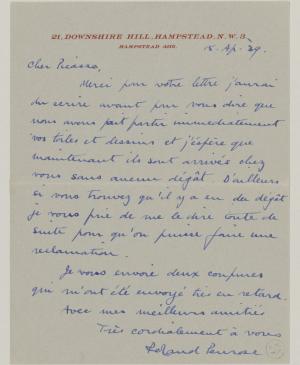 21, DOWNSHIRE HILL, HAMPSTEAD, N.W.3.
HAMPSTEAD
Ap. 39.
Cher Picasso,
Merci pour votre lettre j'aurai
du écrire avant pour vous dire que
nous avons fait partir immediatement
vos toiles et dessins et j'éspère que
maintenant ils sont arrivés chez
vous sans aucun dégât. D'ailleurs
si vous trouvez qu'il y a eu du dégât
je vous prie de me le dire toute de
suite pour qu'on puisse faire une
reclamation.
Je vous envoie deux coupures
qui m'ont été envoyé tres en retard.
Avec mes meilleurs amitiés
Très cordialement à vous
Roland Penrose